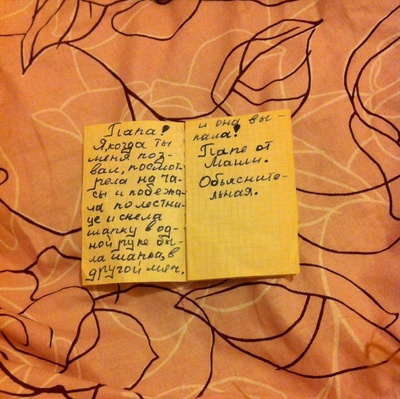 Папа!
Я, когда ты
меня поз-
вал, посмот-
рела на ча-
сы и побежа-
ла по лестни-
це и снела
шапку в од-
ной руке бы-
ла шапка, в
другой мяч.
и она вы-
пала!
Папе от
Маши.
Объясните-
льная.